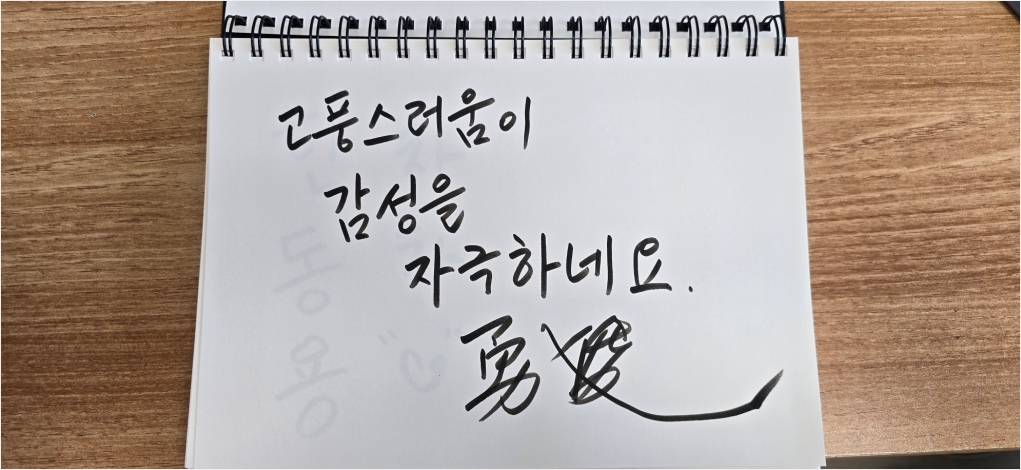 고풍스러움이
감성을
자극하네요.
勇